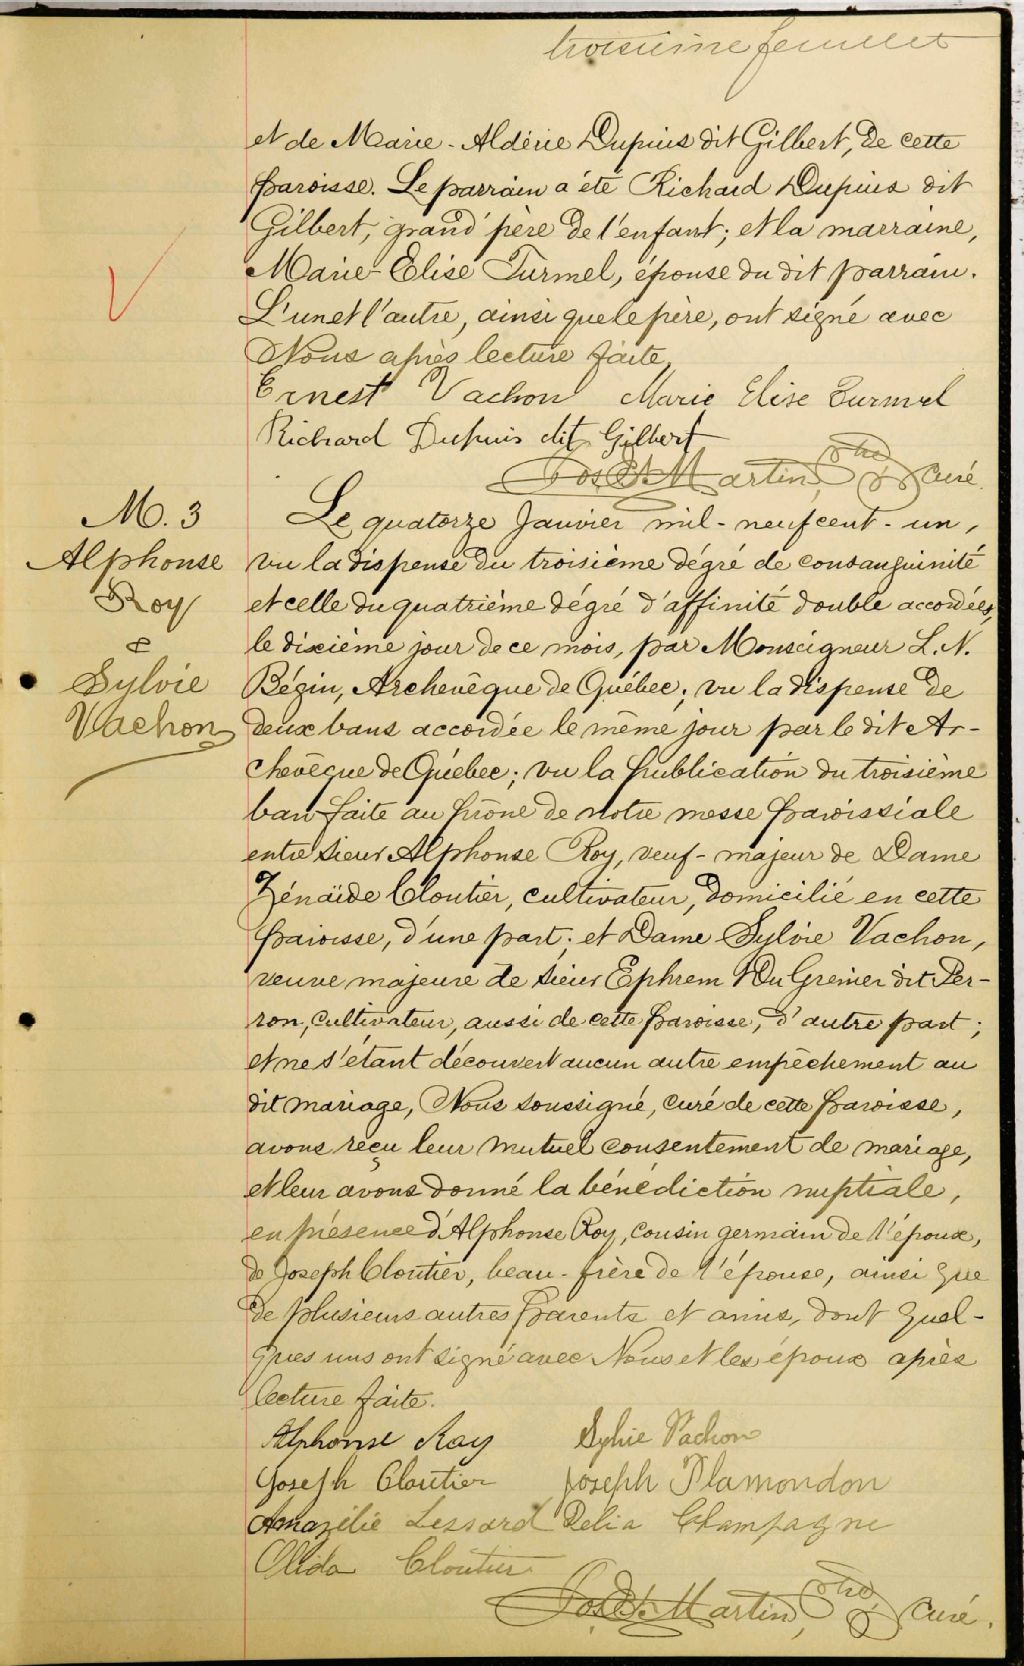 troisième feuillet
et de Marie-Aldérie Dupuis dit Gilbert, de cette
paroisse. Le parrain a été Richard Dupuis dit
Gilbert, grand'père de l'enfant; et la marraine,
Marie-Elise Turmel, épouse du dit parrain.
L'un et l'autre, ainsi que le père, ont signé avec
Nous après lecture faite,
Ernest Vachon Marie Elise Turmel
Richard Dupuis dit Gilbert
Jos. Martin, ptre curé.
M. 3
Alphonse
Roy
&
Sylvie
Vachon
Le quatorze Janvier mil-neuf cent-un,
vu la dispense du troisième dégré de consanguinité
et celle du quatrième dégré d'affinité double accordées,
le dixième jour de ce mois, par Monseigneur L. N.
Bégin, Archevêque de Québec; vu la dispense de
deux bans accordée le même jour par le dit Ar-
chevêque de Québec; vu la publication du troisième
ban faite au prône de notre messe paroissiale
entre sieur Alphonse Roy, veuf-majeur de Dame
Zénaïde Cloutier, cultivateur, domicilié en cette
paroisse, d'une part; et Dame Sylvie Vachon,
veuve majeure de sieur Ephrem Du Grenier dit Per-
ron, cultivateur, aussi de cette paroisse, d'autre part;
et ne s'étant découvert aucun autre empêchement au
dit mariage, Nous soussigné, curé de cette paroisse,
avons reçu leur mutuel consentement de mariage,
et leur avons donné la bénédiction nuptiale,
en présence d'Alphonse Roy, cousin germain de l'époux,
de Joseph Cloutier, beau-frère de l'épouse, ainsi que
de plusieurs autres parents et amis, dont quel-
ques uns ont signé avec Nous et les époux après
lecture faite.
Alphonse Roy Sylvie Vachon
Joseph Cloutier Joseph Plamondon
Amazélie Lessard Delia Champagne
Olida Cloutier
Jos. Martin, ptre curé.